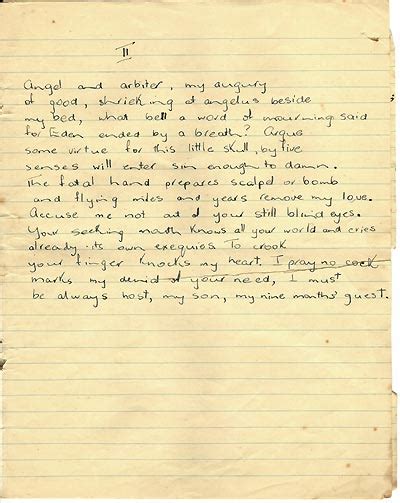 II
Angel and arbiter, my augury
of good, shrieking at angelus beside
my bed, what bell a word of mourning said
for Eden ended by a breath? Argue
some virtue for this little skull, by five
senses will enter sin enough to damn.
The fatal hand prepares scalpel or bomb
and flying miles and years remove my love.
Accuse me not out of your still blind eyes.
Your seeking mouth knows all your world and cries
already its own exequies. To crook
your finger knocks my heart. I pray no cock
marks my denial of your need, I must
be always host, my son, my nine months' guest.